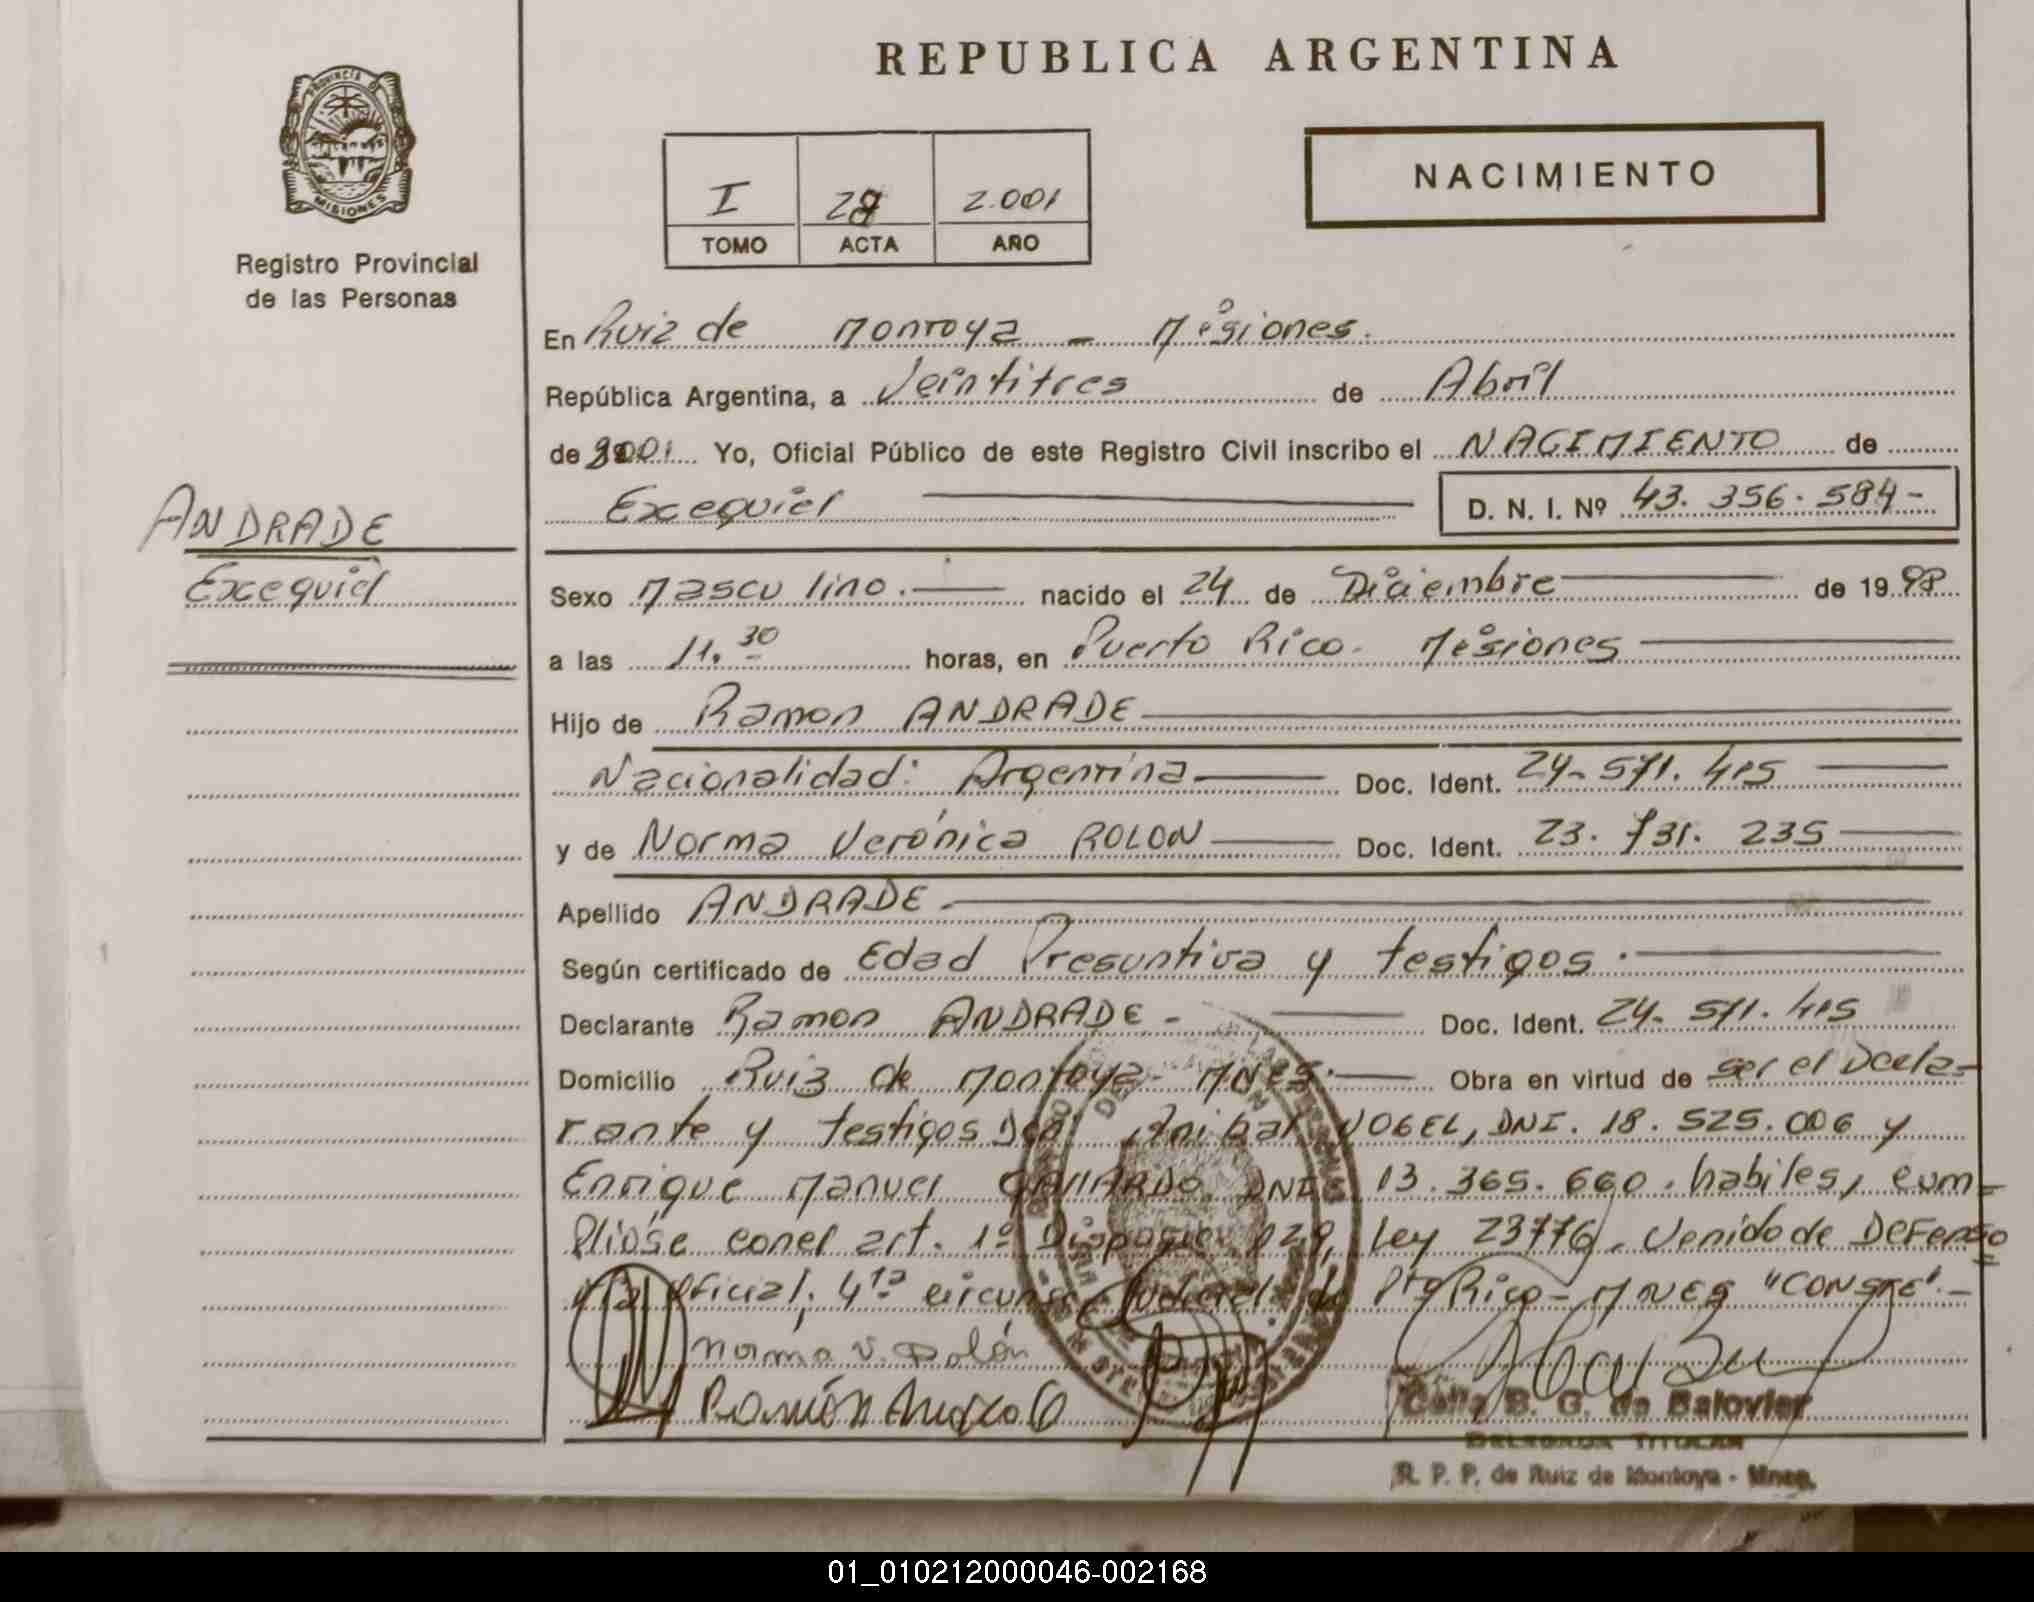 REPUBLICA ARGENTINA
PROVINCIA DE
MISIONES
Registro Provincial
de las Personas
I 2.001
TOMO ACTA AÑO
NACIMIENTO
En Ruiz de Montoya - Misiones.
República Argentina, a Veintitres de Abril
de 2001 Yo, Oficial Público de este Registro Civil inscribo el NACIMIENTO de
Exequiel D. N. I. Nº 43. 356. 584-
ANDRADE
Exequiel
Sexo Masculino. nacido el 24 de Diciembre de 1998
a las 11.30 horas, en Puerto Rico. Misiones
Hijo de Ramon ANDRADE
Nacionalidad: Argentina Doc. Ident. 24. 571. 415
y de Norma Verónica ROLON Doc. Ident. 23. 731. 235
Apellido ANDRADE
Según certificado de Edad Presuntiva y testigos.
Declarante Ramon ANDRADE- Doc. Ident. 24. 571. 415
Domicilio Ruiz de Montoya- MNES. Obra en virtud de ser el Decla-
rante y testigos Anibal VOGEL, DNI. 18. 525. 006 y
Enrique Manuel GALLARDO, DNI 13. 365. 660. habiles, cum-
pliose con el art. 1º Ley 23776. Venido de Defenso
ria Oficial, 4ta Judicial de Pto Rico- MNES "CONSTE".-
Norma V. Rolón
Ramón Andrade
Celia B. G. de Balovier
DELEGADA TITULAR
R. P. P. de Ruiz de Montoya - Mnes.
01_010212000046-002168